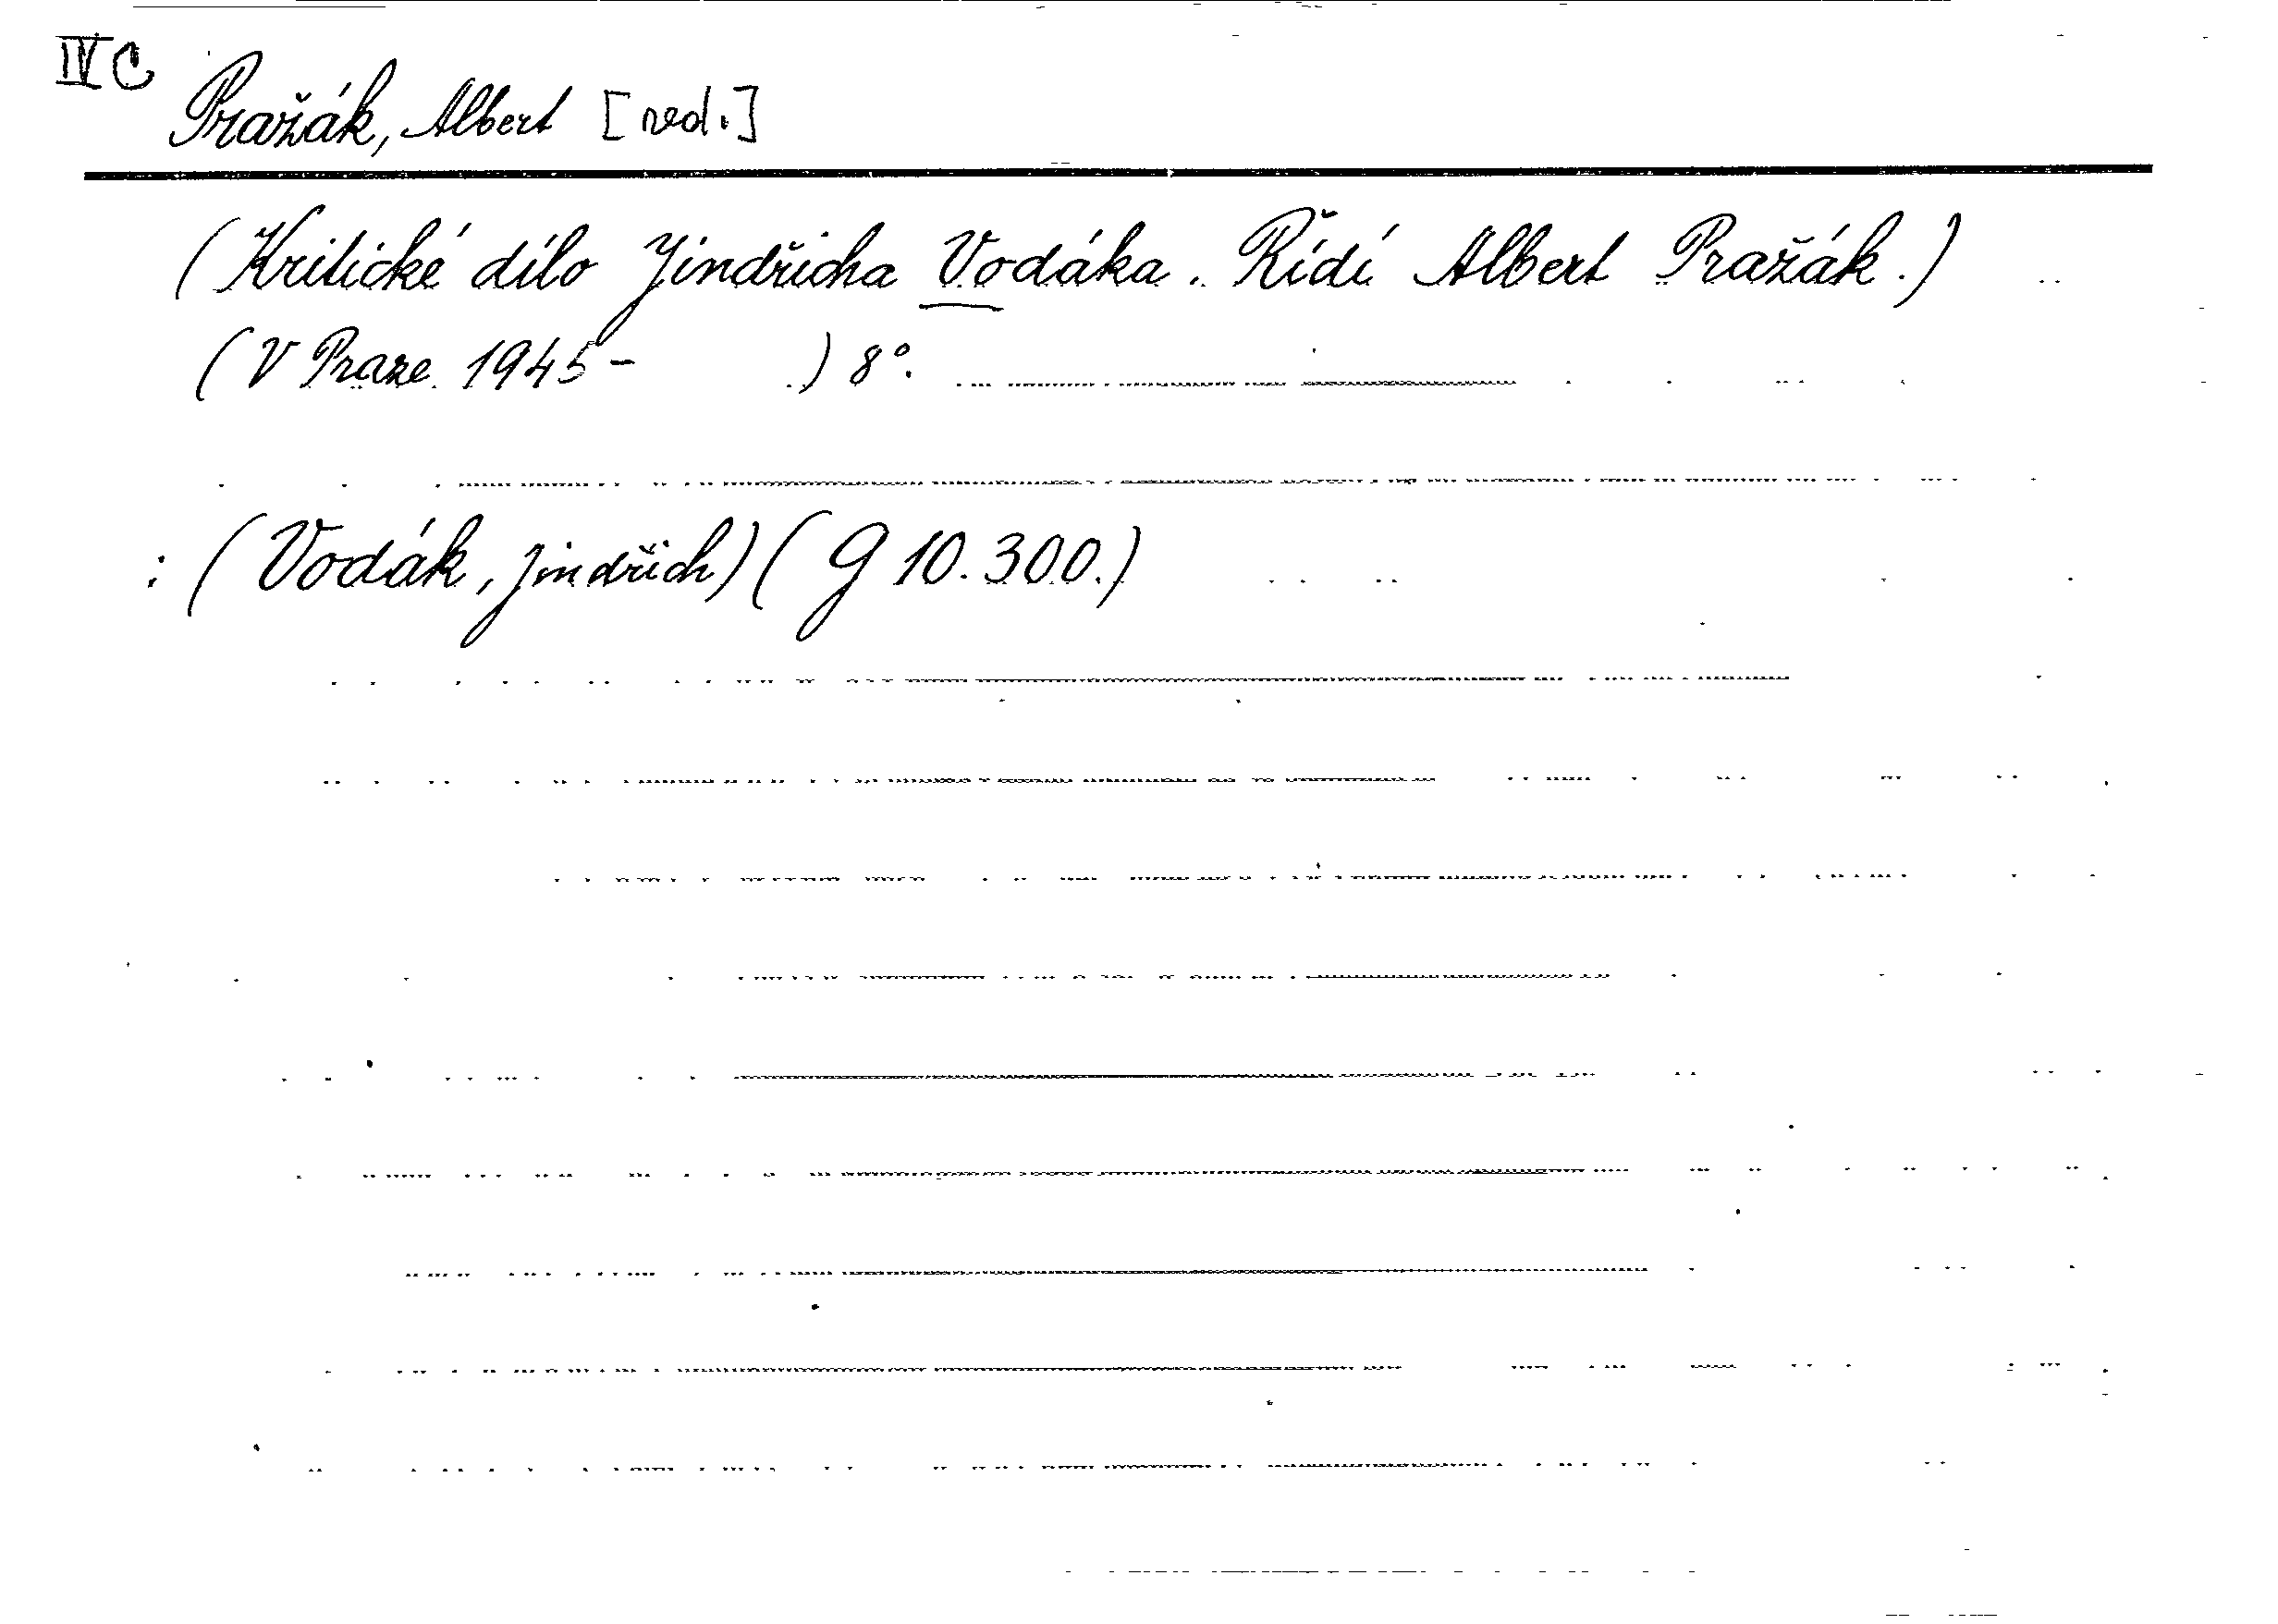 IV C
Pražák, Albert [red.]
(Kritické dílo Jindřicha Vodáka. Řídí Albert Pražák.)
(V Praze 1945- ) 8°.
: (Vodák, Jindřich) (G 10.300.)